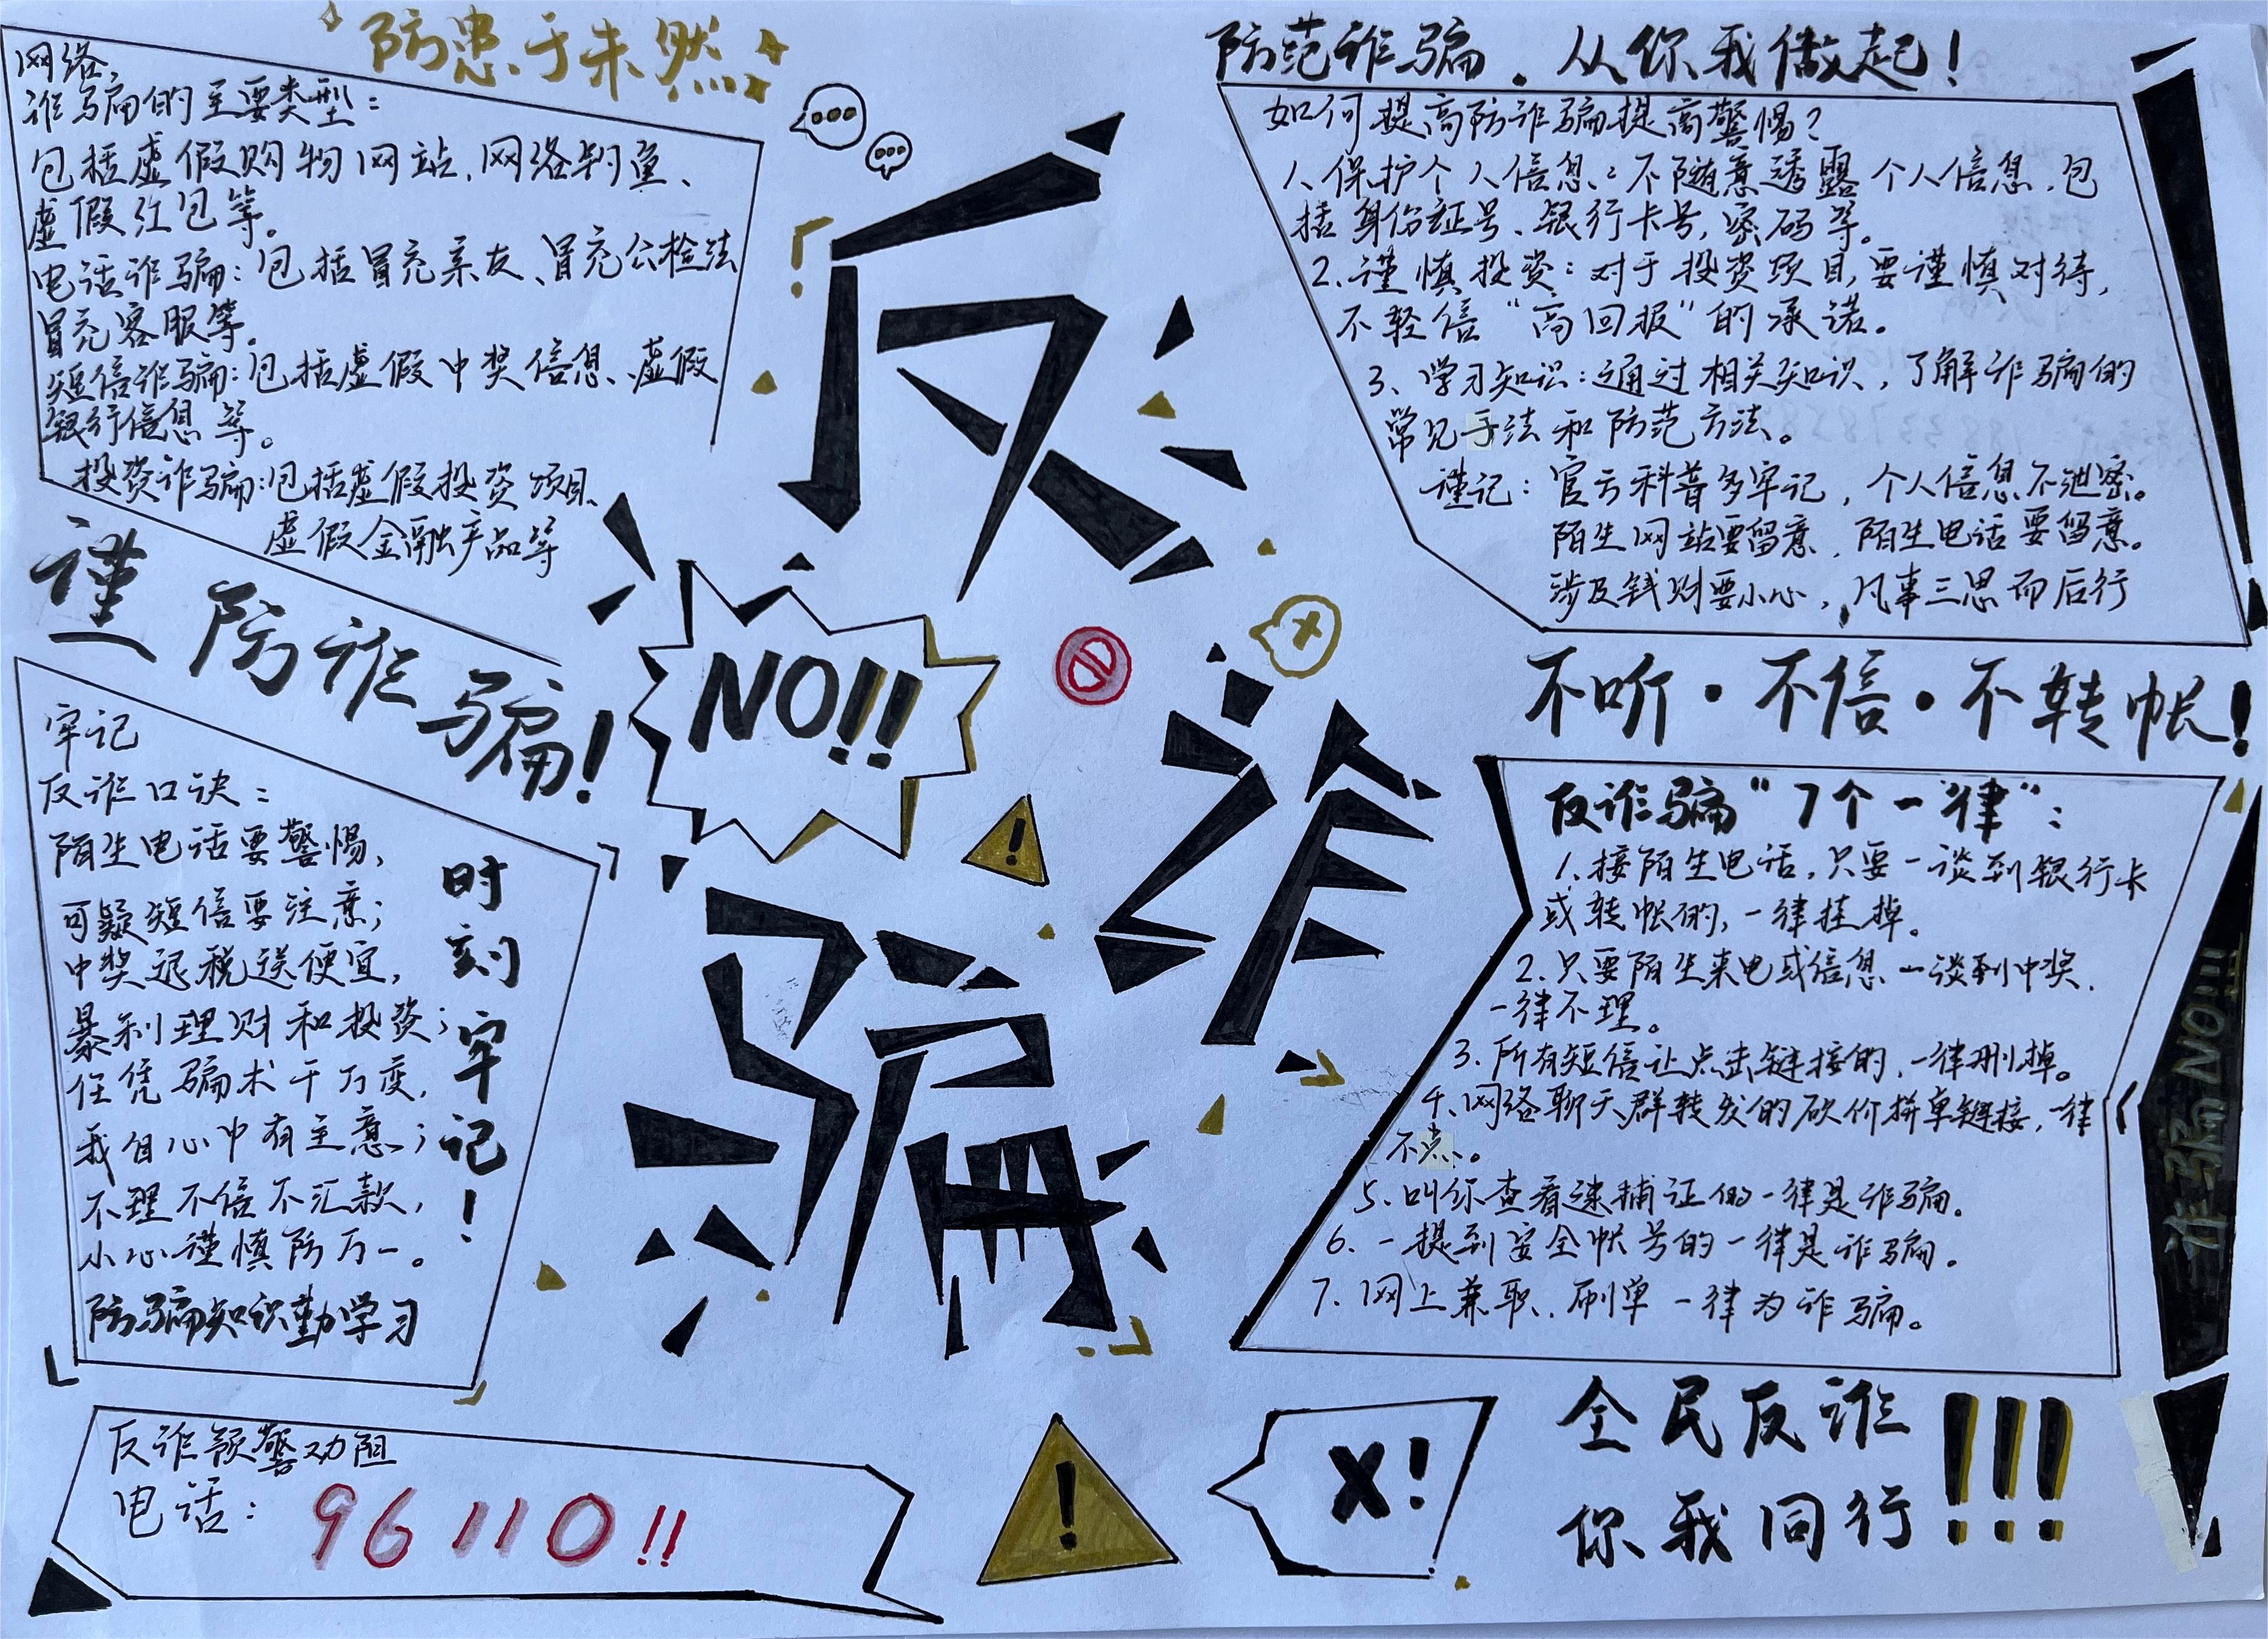 防患于未然
网络
诈骗的主要类型：
包括虚假购物网站、网络钓鱼、
虚假红包等。
电话诈骗：包括冒充亲友、冒充公检法
冒充客服等。
短信诈骗：包括虚假中奖信息、虚假
银行信息等。
投资诈骗：包括虚假投资项目、
虚假金融产品等
谨防诈骗！
牢记
反诈口诀：
陌生电话要警惕，
可疑短信要注意；
中奖退税送便宜，
暴利理财和投资；
任凭骗术千万变，
我自心中有主意；
不理不信不汇款，
小心谨慎防万一。
防骗知识勤学习
时刻牢记！
反诈预警劝阻
电话：96110!!
反诈骗
NO!!
!
防范诈骗．从你我做起！
如何提高防诈骗提高警惕？
1、保护个人信息：不随意透露个人信息，包
括身份证号、银行卡号，密码等。
2.谨慎投资：对于投资项目，要谨慎对待，
不轻信“高回报”的承诺。
3、学习知识：通过相关知识，了解诈骗的
常见手法和防范方法。
谨记：官方科普多牢记，个人信息不泄密。
陌生网站要留意，陌生电话要留意。
涉及钱财要小心，凡事三思而后行
不听·不信·不转帐！
反诈骗“7个一律”：
1.接陌生电话，只要一谈到银行卡
或转帐的，一律挂掉。
2.只要陌生来电或信息一谈到中奖，
一律不理。
3.所有短信让点击链接的，一律删掉。
4、网络聊天群转发的砍价拼单链接，一律
不点。
5.叫你查看逮捕证的一律是诈骗。
6.一提到安全帐号的一律是诈骗。
7.网上兼职、刷单一律为诈骗。
诈骗NO!!!
!
X!
全民反诈
你我同行!!!